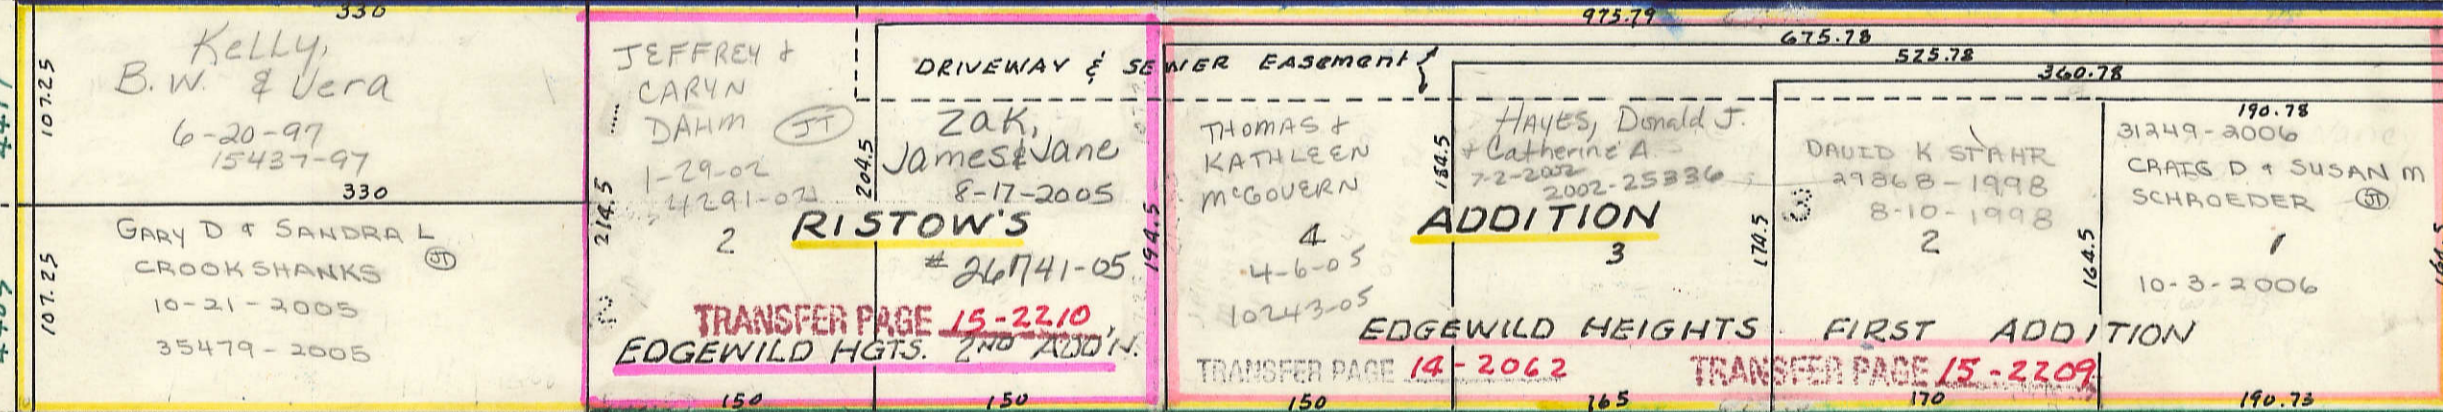 330
975.79
675.78
525.78
360.78
190.78
107.25
Kelly,
B.W. & Vera
6-20-97
15437-97
330
107.25
GARY D & SANDRA L
CROOKSHANKS
JT
10-21-2005
35479-2005
JEFFREY &
CARYN
DAHM
JT
1-29-02
4291-02
214.5
2
204.5
DRIVEWAY & SEWER EASEMENT
Zak,
James & Jane
8-17-2005
# 26741-05
194.5
RISTOW'S ADDITION
TRANSFER PAGE 15-2210,
EDGEWILD HGTS. 2ND ADD'N.
THOMAS &
KATHLEEN
McGOVERN
4
4-6-05
10243-05
184.5
HAYES, Donald J.
& Catherine A.
7-2-2002
2002-25336
3
174.5
DAVID K STAHR
29868-1998
8-10-1998
2
164.5
31249-2006
CRAIG D & SUSAN M
SCHROEDER
JT
1
10-3-2006
EDGEWILD HEIGHTS FIRST ADDITION
TRANSFER PAGE 14-2062
TRANSFER PAGE 15-2209
150
150
150
165
170
190.73